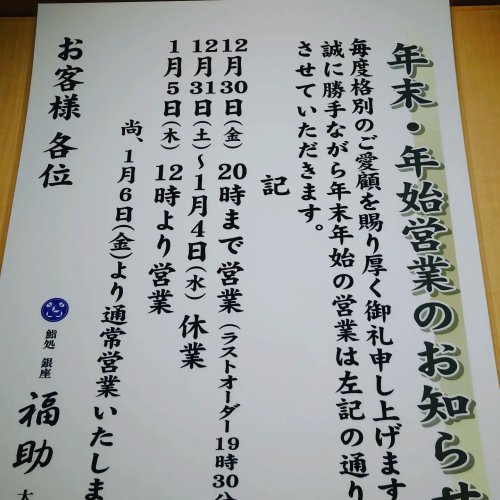 年末・年始営業のお知らせ
毎度格別のご愛顧を賜り厚く御礼申し上げます
誠に勝手ながら年末年始の営業は左記の通り
させていただきます。
記
12月30日(金) 20時まで営業(ラストオーダー19時30分
12月31日(土)～1月4日(水) 休業
1月5日(木) 12時より営業
尚、1月6日(金)より通常営業いたしま
お客様 各位
鮨処 銀座 福助